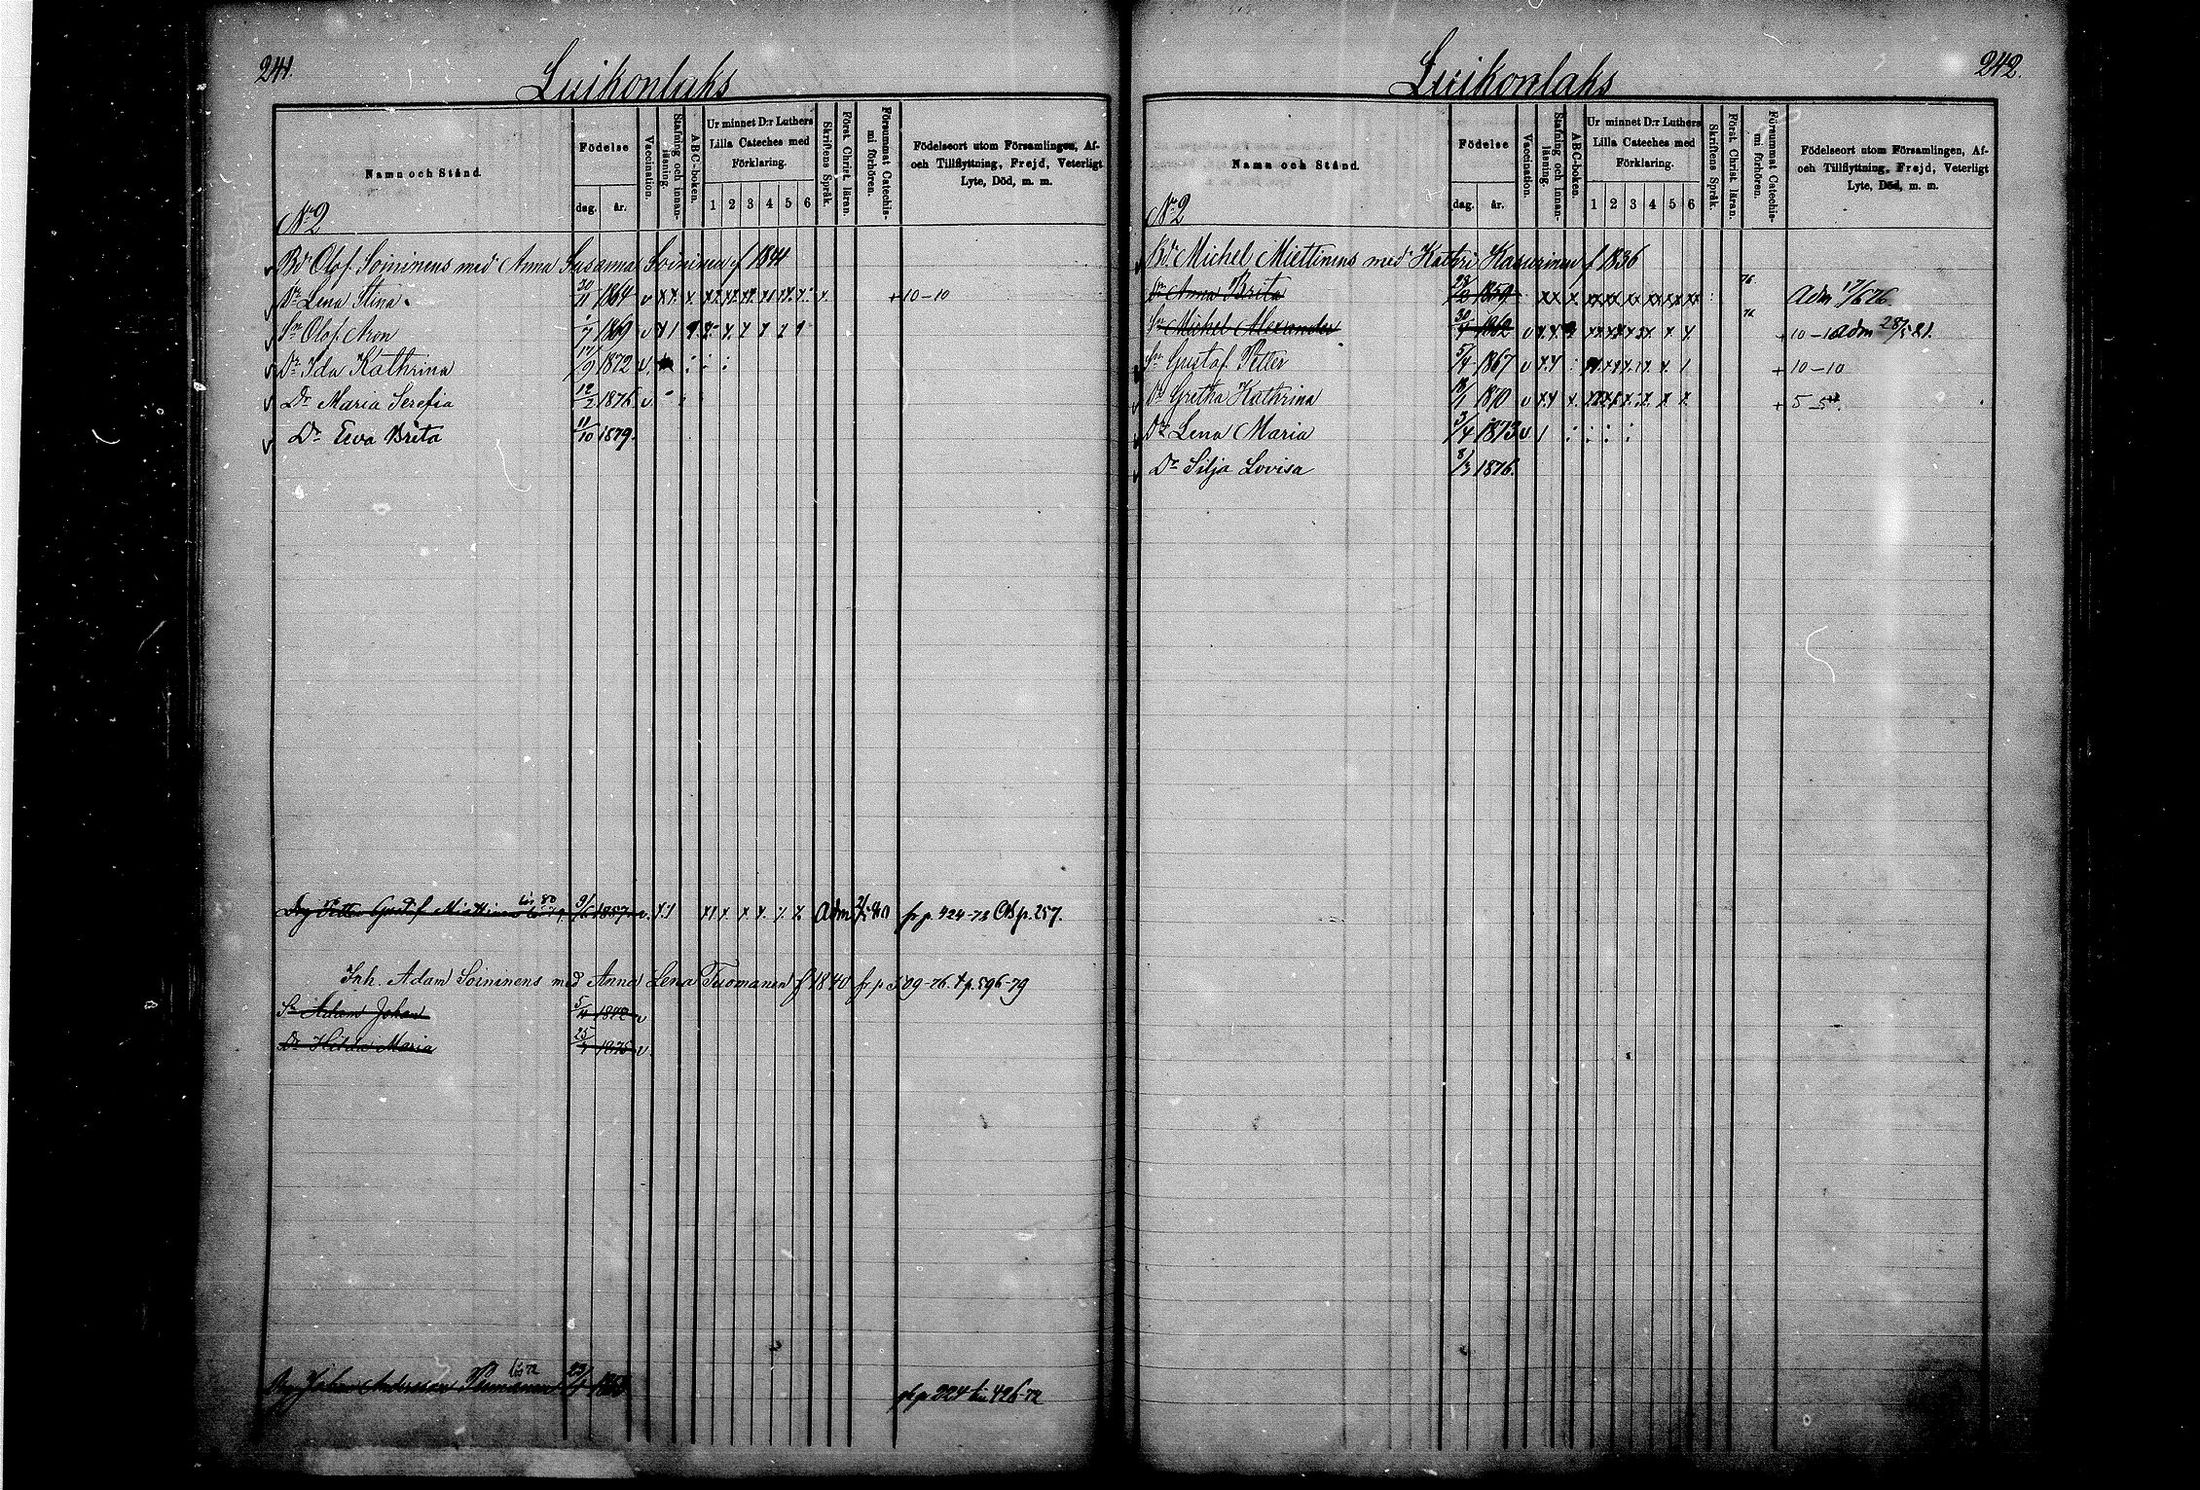 241.
Luikonlaks
Namn och Stånd.
Födelse
dag. år.
Vaccination.
Stafning och innanläsning.
ABC-boken.
Ur minnet D:r Luthers
Lilla Cateches med
Förklaring.
1 2 3 4 5 6
Skriftens Språk.
Först. Christ. läran.
Försummat Catechismi förhören.
Födelseort utom Församlingen, Af-
och Tillflyttning, Frejd, Veterligt
Lyte, Död, m. m.
No 2
Bd Olof Soininens med Anna Susanna Soininen f 1844
Dr Lena Stina 30/11 1864 v + 10-10
Sn Olof Aron 1/7 1869 v
Dr Ida Kathrina 17/9 1872 v.
Dr Maria Serefia 12/2 1876 v.
Dr Ewa Brita 11/10 1879.
Drg Petter Gustaf Miettinen 9/6 1857 v. Adm fr p. 424-78 Ob p. 257.
Inh. Adam Soininens med Anna Lena Tuomanen f 1840 fr p 509-76 t p. 596-79
Sn Adam Johan 5/4 1872 v
Dr Hilda Maria 25/7 1875 v.
Johan Andersson
242.
Luikonlaks
Namn och Stånd.
Födelse
dag. år.
Vaccination.
Stafning och innanläsning.
ABC-boken.
Ur minnet D:r Luthers
Lilla Cateches med
Förklaring.
1 2 3 4 5 6
Skriftens Språk.
Först. Christ. läran.
Försummat Catechismi förhören.
Födelseort utom Församlingen, Af-
och Tillflyttning, Frejd, Veterligt
Lyte, Död, m. m.
No 2
Bd Michel Miettinens med Kathri Kasurinen f 1836
Dr Anna Brita 1859 76 Adm 17/6 76
Sn Michel Alexander 1862 v 76 + 10-10 adm 28/5 81.
Sn Gustaf Petter 5/4 1867 v + 10-10
Dr Gretha Kathrina 18/1 1870 v + 5-5
Dr Lena Maria 3/4 1873 v
Dr Silja Lovisa 8/3 1876.